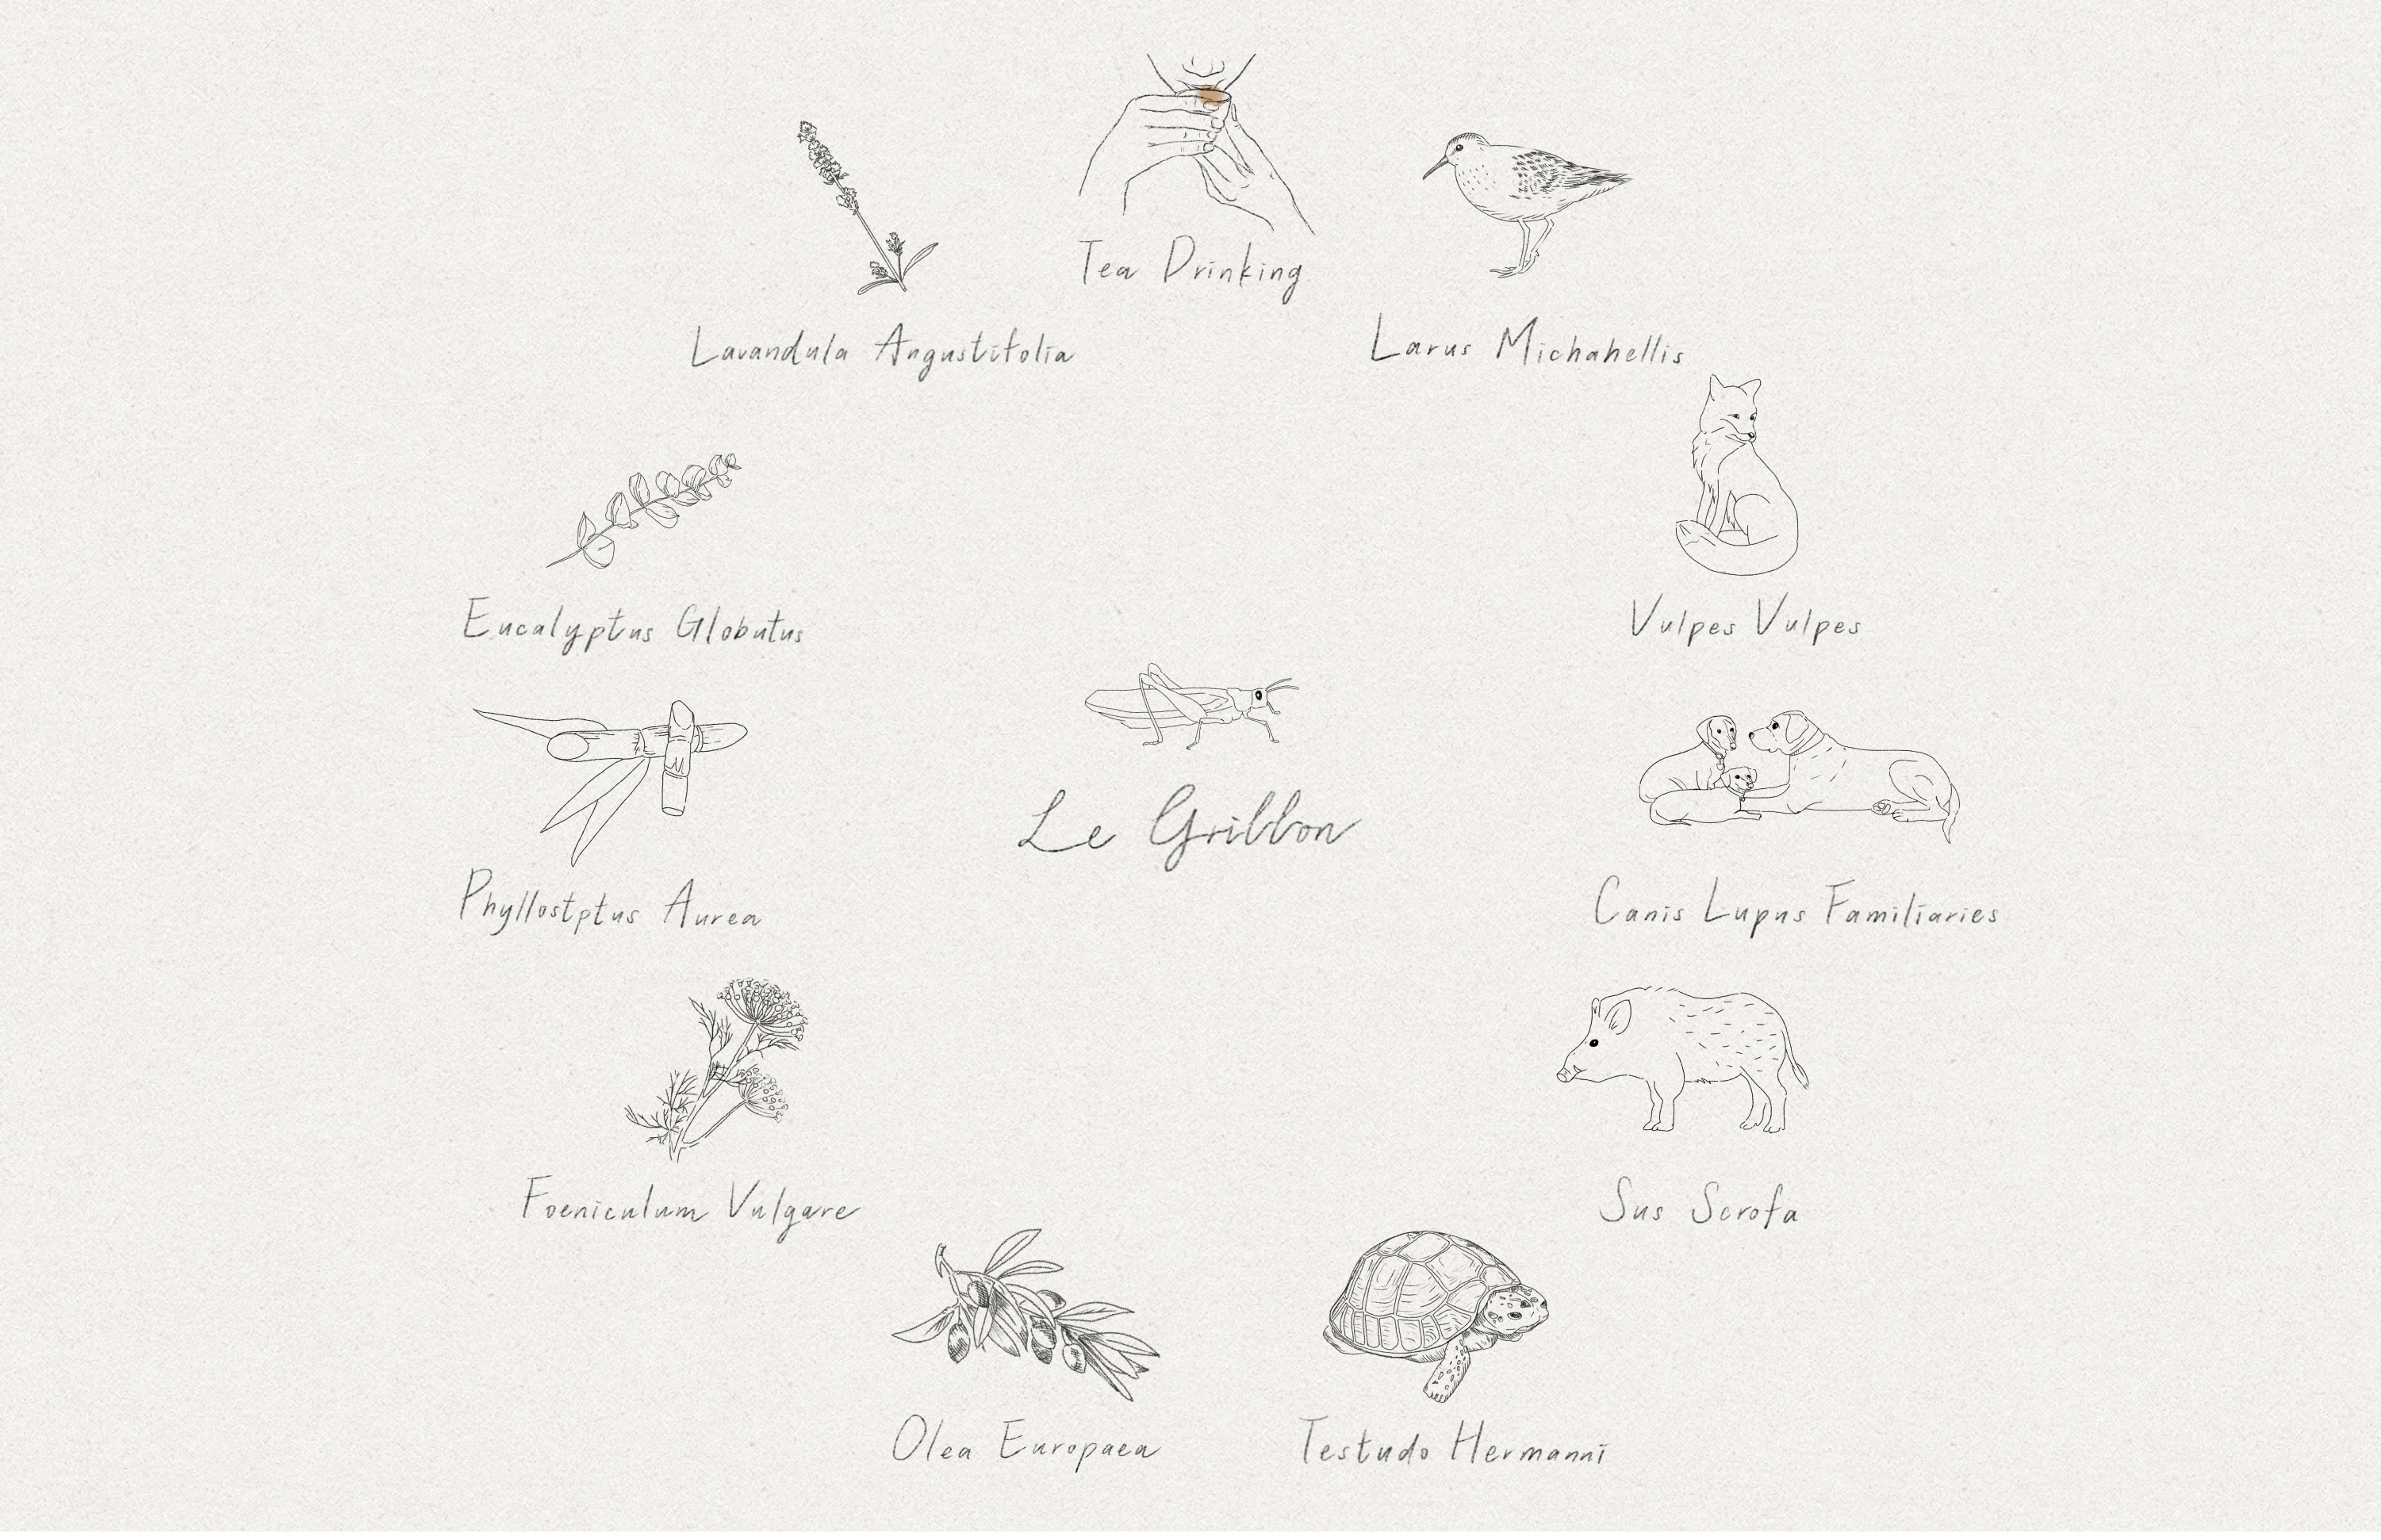 Tea Drinking
Lavandula Angustifolia
Larus Michahellis
Eucalyptus Globutus
Vulpes Vulpes
Le Grillon
Phyllostptus Aurea
Canis Lupus Familiaries
Foeniculum Vulgare
Sus Scrofa
Olea Europaea
Testudo Hermanni